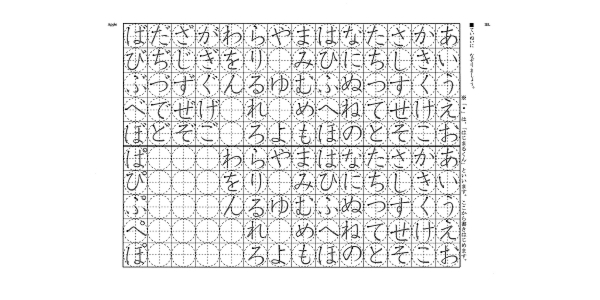 ■ていねいに なぞりましょう。
あいうえお
かきくけこ
さしすせそ
たちつてと
なにぬねの
はひふへほ
まみむめも
やゆよ
らりるれろ
わをん
がぎぐげご
ざじずぜぞ
だぢづでど
ばびぶべぼ
あいうえお
かきくけこ
さしすせそ
たちつてと
なにぬねの
はひふへほ
まみむめも
やゆよ
らりるれろ
わをん
ぱぴぷぺぽ
は、「はじまるくん」といいます。ここから書きはじめます。